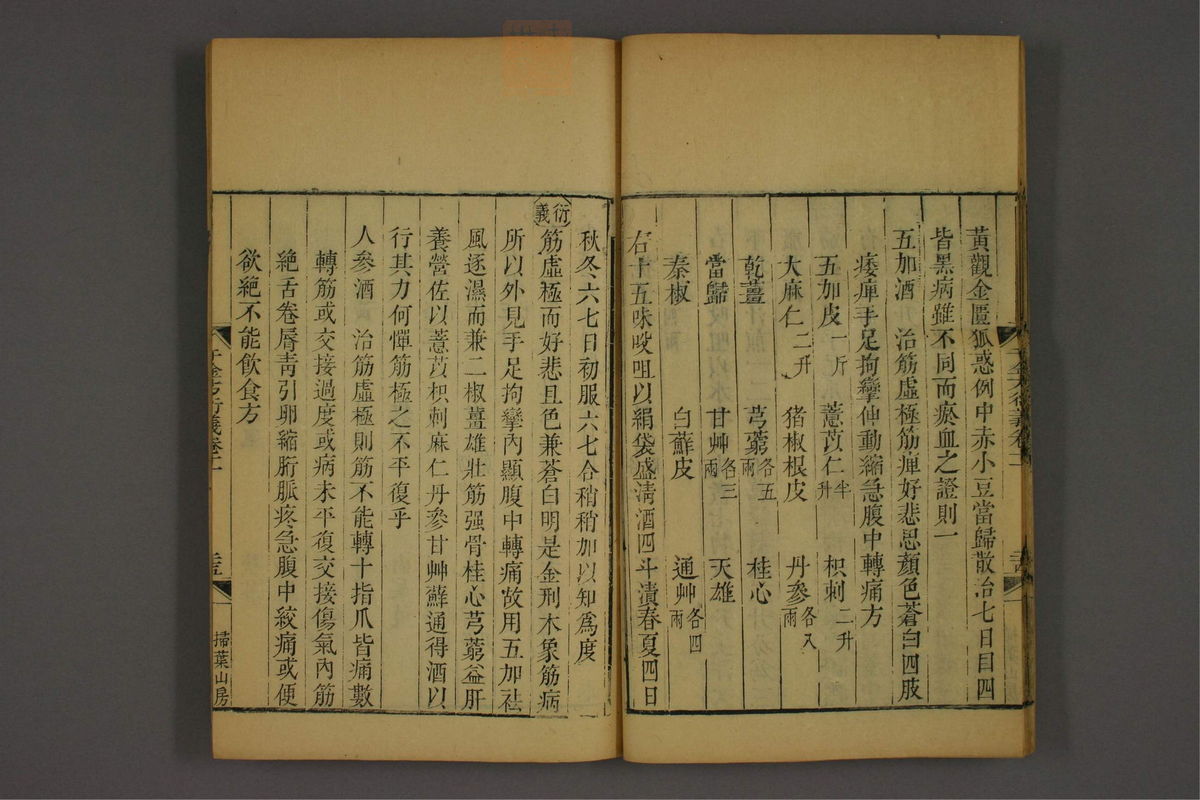 黃觀金匱狐惑例中赤小豆當歸散治七日目四
皆黑病雖不同而瘀血之證則一
五加酒 治筋虛極筋痺好悲思顏色蒼白四肢
痿痺手足拘攣伸動縮急腹中轉痛方
五加皮一斤 薏苡仁半升 枳刺二升
大麻仁二升 猪椒根皮 丹參各八兩
乾薑 芎藭各五兩 桂心
當歸 甘艸各三兩 天雄
秦椒 白蘚皮 通艸各四兩
右十五味㕮咀以絹袋盛淸酒四斗漬春夏四日
秋冬六七日初服六七合稍稍加以知爲度
衍義 筋虛極而好悲且色兼蒼白明是金刑木象筋病
所以外見手足拘攣內顯腹中轉痛故用五加祛
風逐濕而兼二椒薑雄壯筋强骨桂心芎藭益肝
養營佐以薏苡枳刺麻仁丹參甘艸蘚通得酒以
行其力何憚筋極之不平復乎
人參酒 治筋虛極則筋不能轉十指爪皆痛數
轉筋或交接過度或病未平復交接傷氣內筋
絶舌卷唇靑引卵縮䯒脈疼急腹中絞痛或便
欲絶不能飮食方
千金方衍義卷十一
掃葉山房